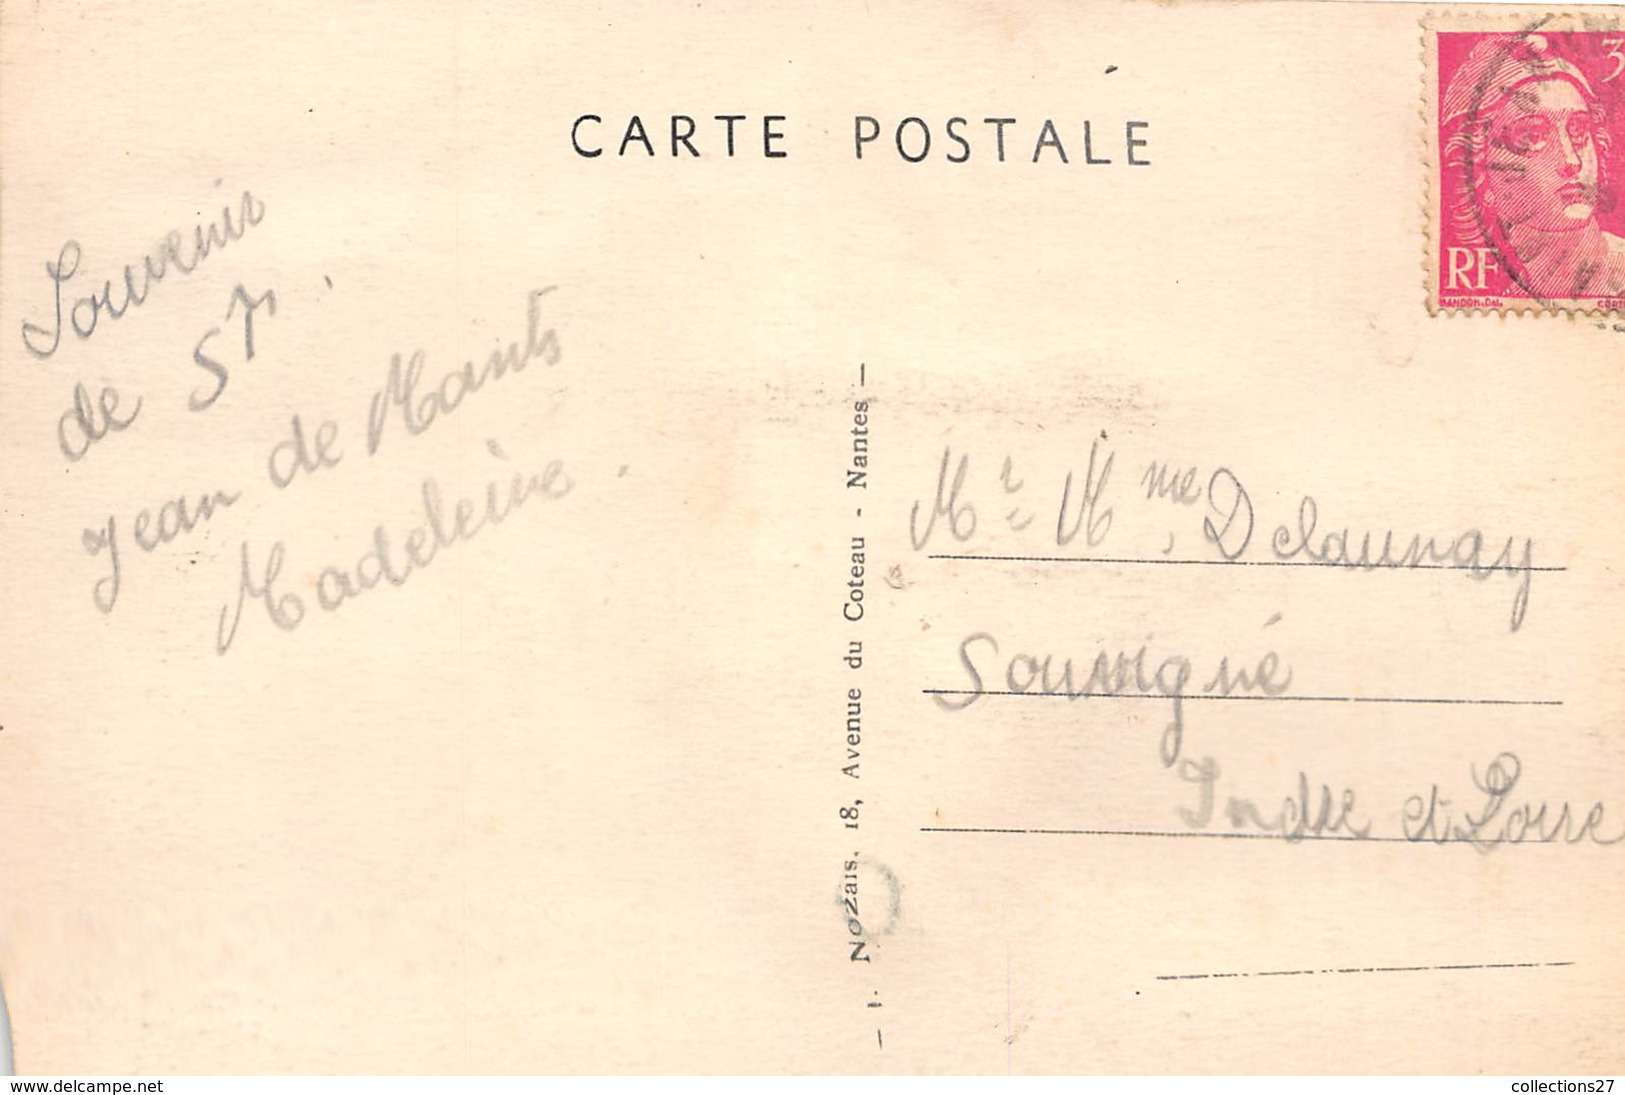 CARTE POSTALE
3
RF
GANDON. Del.
CORT
Souvenir
de St
Jean de Monts
Madeleine.
J. Nozais, 18, Avenue du Coteau - Nantes
Mr Mme Delaunay
Souvigné
Indre et Loire
www.delcampe.net
collections27